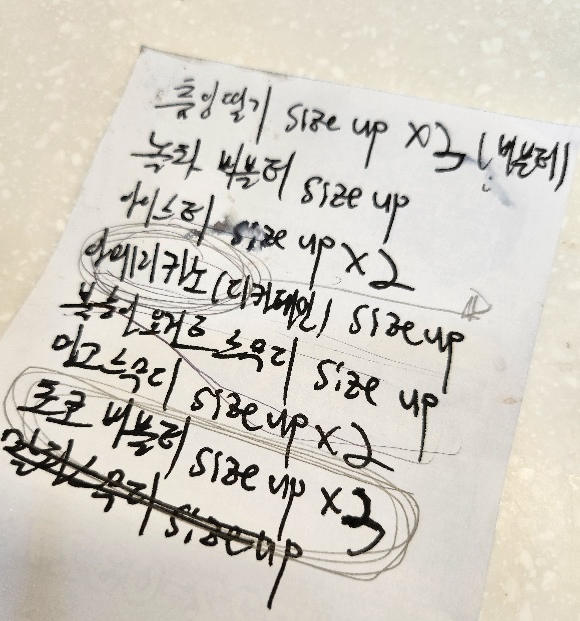 흑임딸기 size up x3 (버블티)
녹차 버블티 size up
아이스티 size up x2
아메리카노 (디카페인) size up
복숭아 요거트 스무디 size up
망고스무디 size up x2
초코 버블티 size up x3
딸기스무디 size up